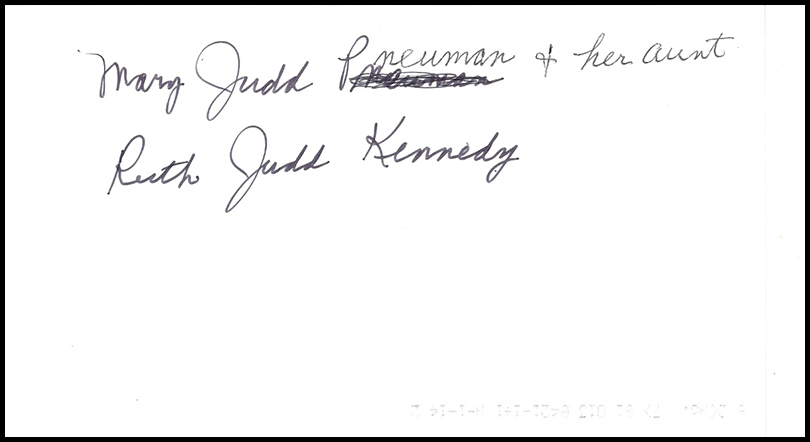 Mary Judd Pneuman & her aunt
Ruth Judd Kennedy